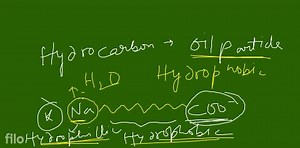 Hydrocarbon → Oil particle
H2O Hydrophobic
K Na COO⁻
filo Hydrophillic Hydrophobic